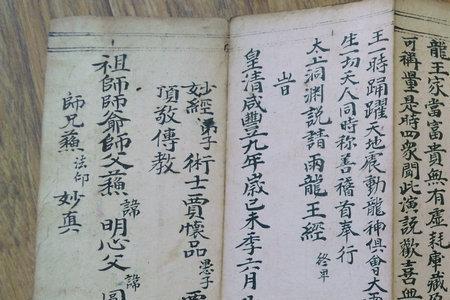 龍王家當富貴無有虛耗庫藏
可稱量是時四衆聞此演説歡喜無
王一時踴躍天地震動龍神俱會大
生一切天人同時称善稽首奉行
太上洞淵説請雨龍王經 终畢
旹
皇清咸豐九年歲已未季六月
妙經弟子術士賈懷品愚子
頂敬傳教
祖師師爺師父蘓諱明心父諱
師兄蘓法印妙真